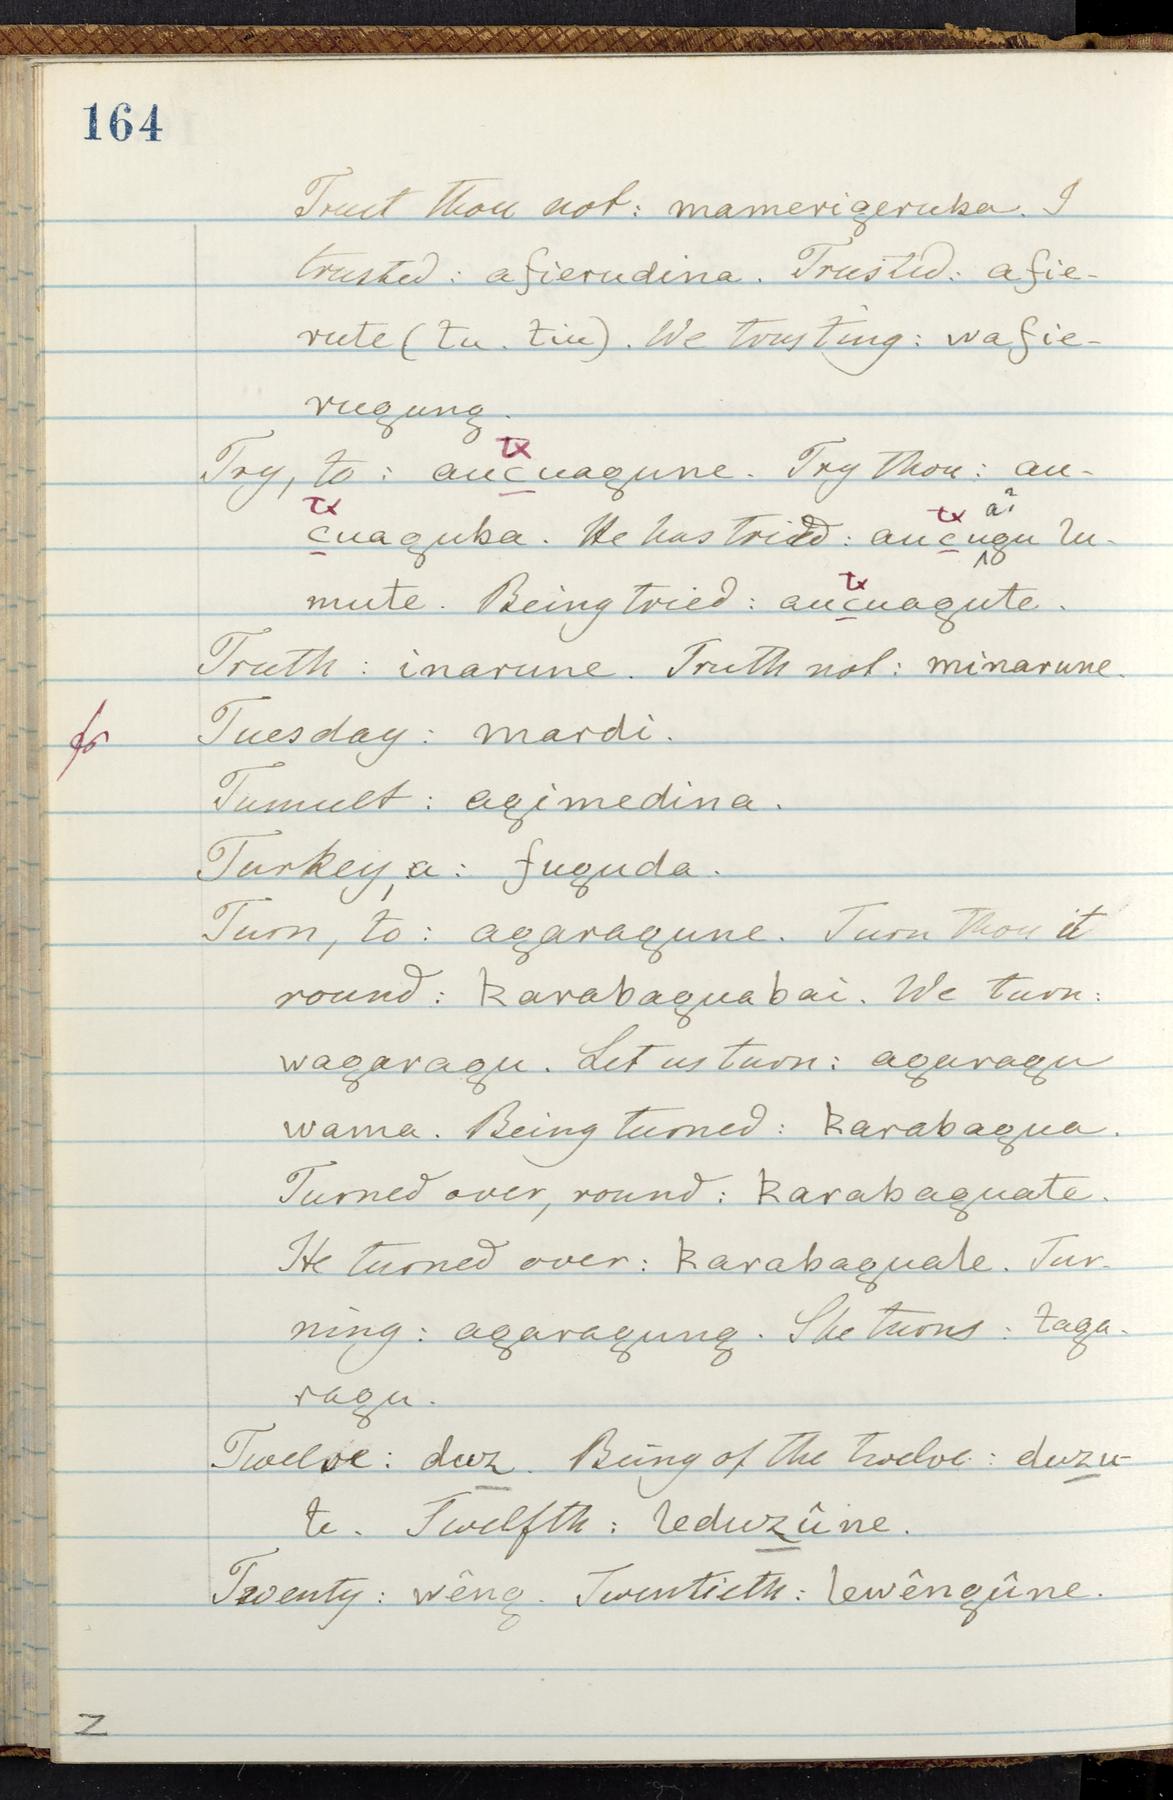 164
Trust thou not: mamerigeruba. I
trusted: afierudina. Trusted: afie-
rute (tu. tiu). We trusting: wafie-
rugung.
tx
Try, to: aucuagune. Try thou: au-
tx tx a?
cuaguba. He has tried: aucugu lu-
tx
mute. Being tried: aucuagute.
Truth: inarune. Truth not: minarune.
fr Tuesday: mardi.
Tumult: agimedina.
Turkey, a: fuguda.
Turn, to: agaragune. Turn thou it
round: karabaguabai. We turn:
wagaragu. Let us turn: agaragu
wama. Being turned: karabagua.
Turned over, round: karabaguate.
He turned over: karabaguale. Tur-
ning: agaragung. She turns: taga-
ragu.
Twelve: duz. Being of the twelve: duzu-
te. Twelfth: leduzûne.
Twenty: wêng. Twentieth: lewêngûne.
Z